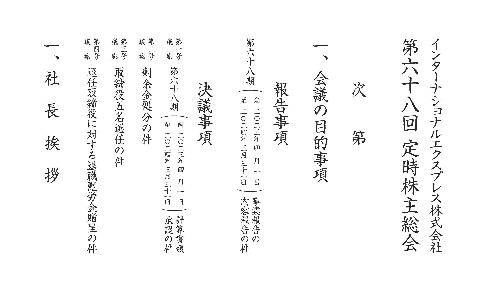 インターナショナルエクスプレス株式会社
第六十八回 定時株主総会
次第
一、会議の目的事項
報告事項
第六十八期
自 二〇二二年四月一日
至 二〇二三年三月三十一日
事業報告の
内容報告の件
決議事項
第一号
議案
第六十八期
自 二〇二二年四月一日
至 二〇二三年三月三十一日
計算書類
承認の件
第二号
議案
剰余金処分の件
第三号
議案
取締役五名選任の件
第四号
議案
退任取締役に対する退職慰労金贈呈の件
一、社長挨拶